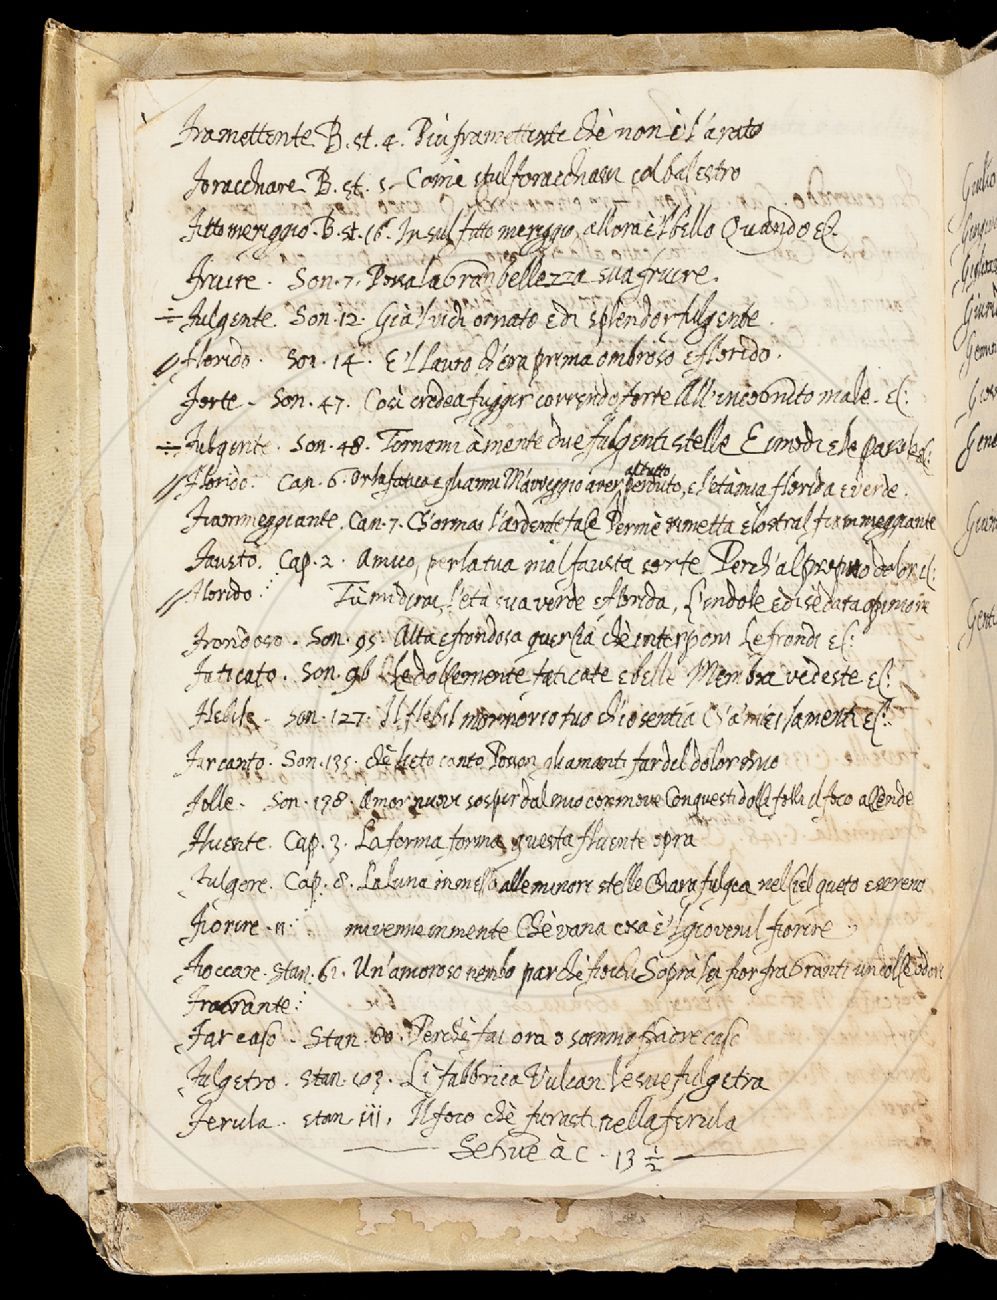 Framettente. B. st. 4. Più framettente chè non è l'arato
Foracchiare. B. st. 5. Com'è stul foracchiam col balestro
Fitto meriggio. B. st. 16. In sul fitto meriggio, allora è 'l bello Quando &c
Fruire. Son. 7. Possa la gran bellezza sua fruire.
÷ Fulgente. Son. 12. Già 'l vidi ornato e di splendor fulgente.
// Florido. Son. 14. E 'l lauro ch'era prima ombroso e florido.
Forte. Son. 47. Così credea fuggir correndo forte All'incognito male. &c:
÷ Fulgente. Son. 48. Tornami à mente due fulgenti stelle E i modi e le parole &c:
// Florido. Can. 6. Or la fatica e gli anni M'avveggio aver al tutto perduto, e l'età mia florida e verde.
Fiammeggiante. Can. 7. Ch'ormai l'ardente face Per mè rimetta e l'ostral fiammeggiante
Fausto. Cap. 2. Amico, per la tua mal fausta sorte Perch'al proprio dolor &c:
// Florido. Tù mi dirai, l'età sua verde e florida, L'indole e di sè data opinione
Frondoso. Son. 95. Alta e frondosa quercia chè interponi Le frondi &c:
Faticato. Son. 96 Che dolcemente faticate e belle Membra vedeste &c:
Flebile. Son. 127. Il flebil mormorio tuo ch'io sentia Ch'a miei lamenti &c:
Far canto. Son. 135. chè lieto canto Posson gli amanti far del dolor mio
Folle. Son. 138. Amor nuovi sospir dal mio cor move Con questi dolci folli il foco accende
Fluente. Cap. 3. La forma forma, questa fluente opra
Fulgere. Cap. 8. La Luna in mezzo alle minori stelle Chiara fulgea nel Ciel queto e sereno
Fiorire. 11: mi venne in mente Chè vana cosa è 'l giovenil fiorire.
Fioccare. Stan. 61. Un'amoroso nembo par chè fiocchi Soprà lei fior fragranti un dolce odore
Fragrante:
Far caso. Stan. 80. Perchè fai ora o sonno
Fulgetro. Stan. 103. Li fabbrica Vulcan le sue fulgetra
Ferula. Stan. 111. Il foco chè furasti nella ferula
Sehuè à c. 13 1/2